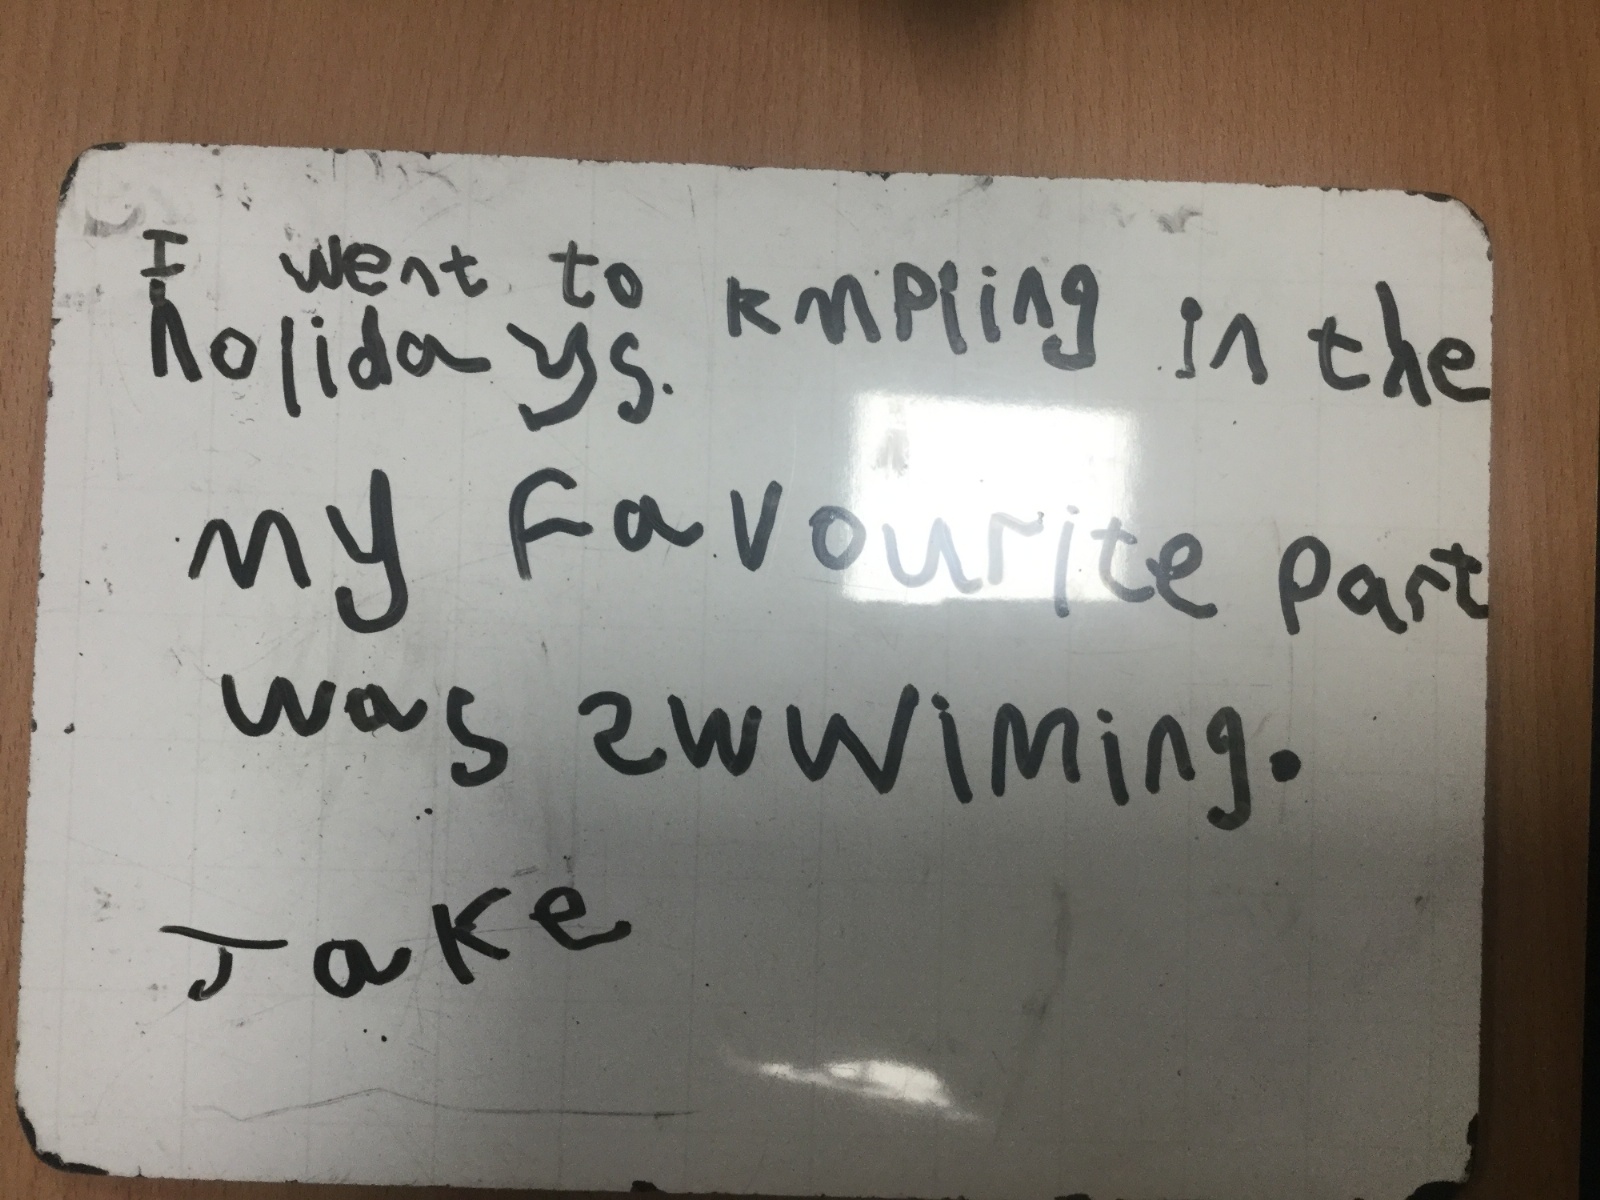 I went to kmpling in the
holidays.
my favourite part
was swwiming.
Jake